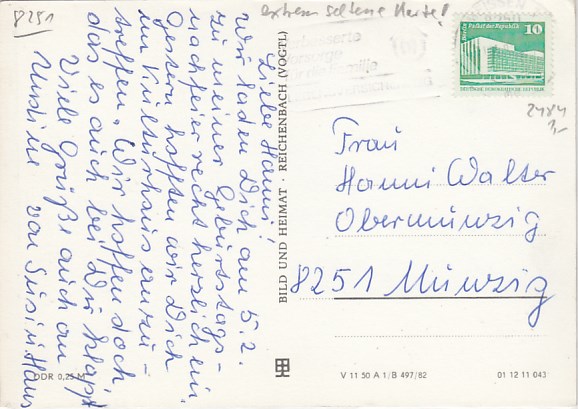 8251
extrem seltene Karte!
Berlin, Palast der Republik
10
DEUTSCHE DEMOKRATISCHE REPUBLIK
2484
1,-
Liebe Hanni!
Wir laden Dich am 5.2.
zu meiner Geburtstags-
nachfeier recht herzlich ein.
Gestern hofften wir Dich
im Kulturhaus anzu-
treffen. Wir hoffen doch
das es auch bei Dir klappt
Viele Grüße auch an
Undine von Susi u. Hans
BILD UND HEIMAT · REICHENBACH (VOGTL)
Frau
Hanni Walter
Obermünzig
8251 Münzig
DDR 0,25 M
V 11 50 A 1/B 497/82
01 12 11 043